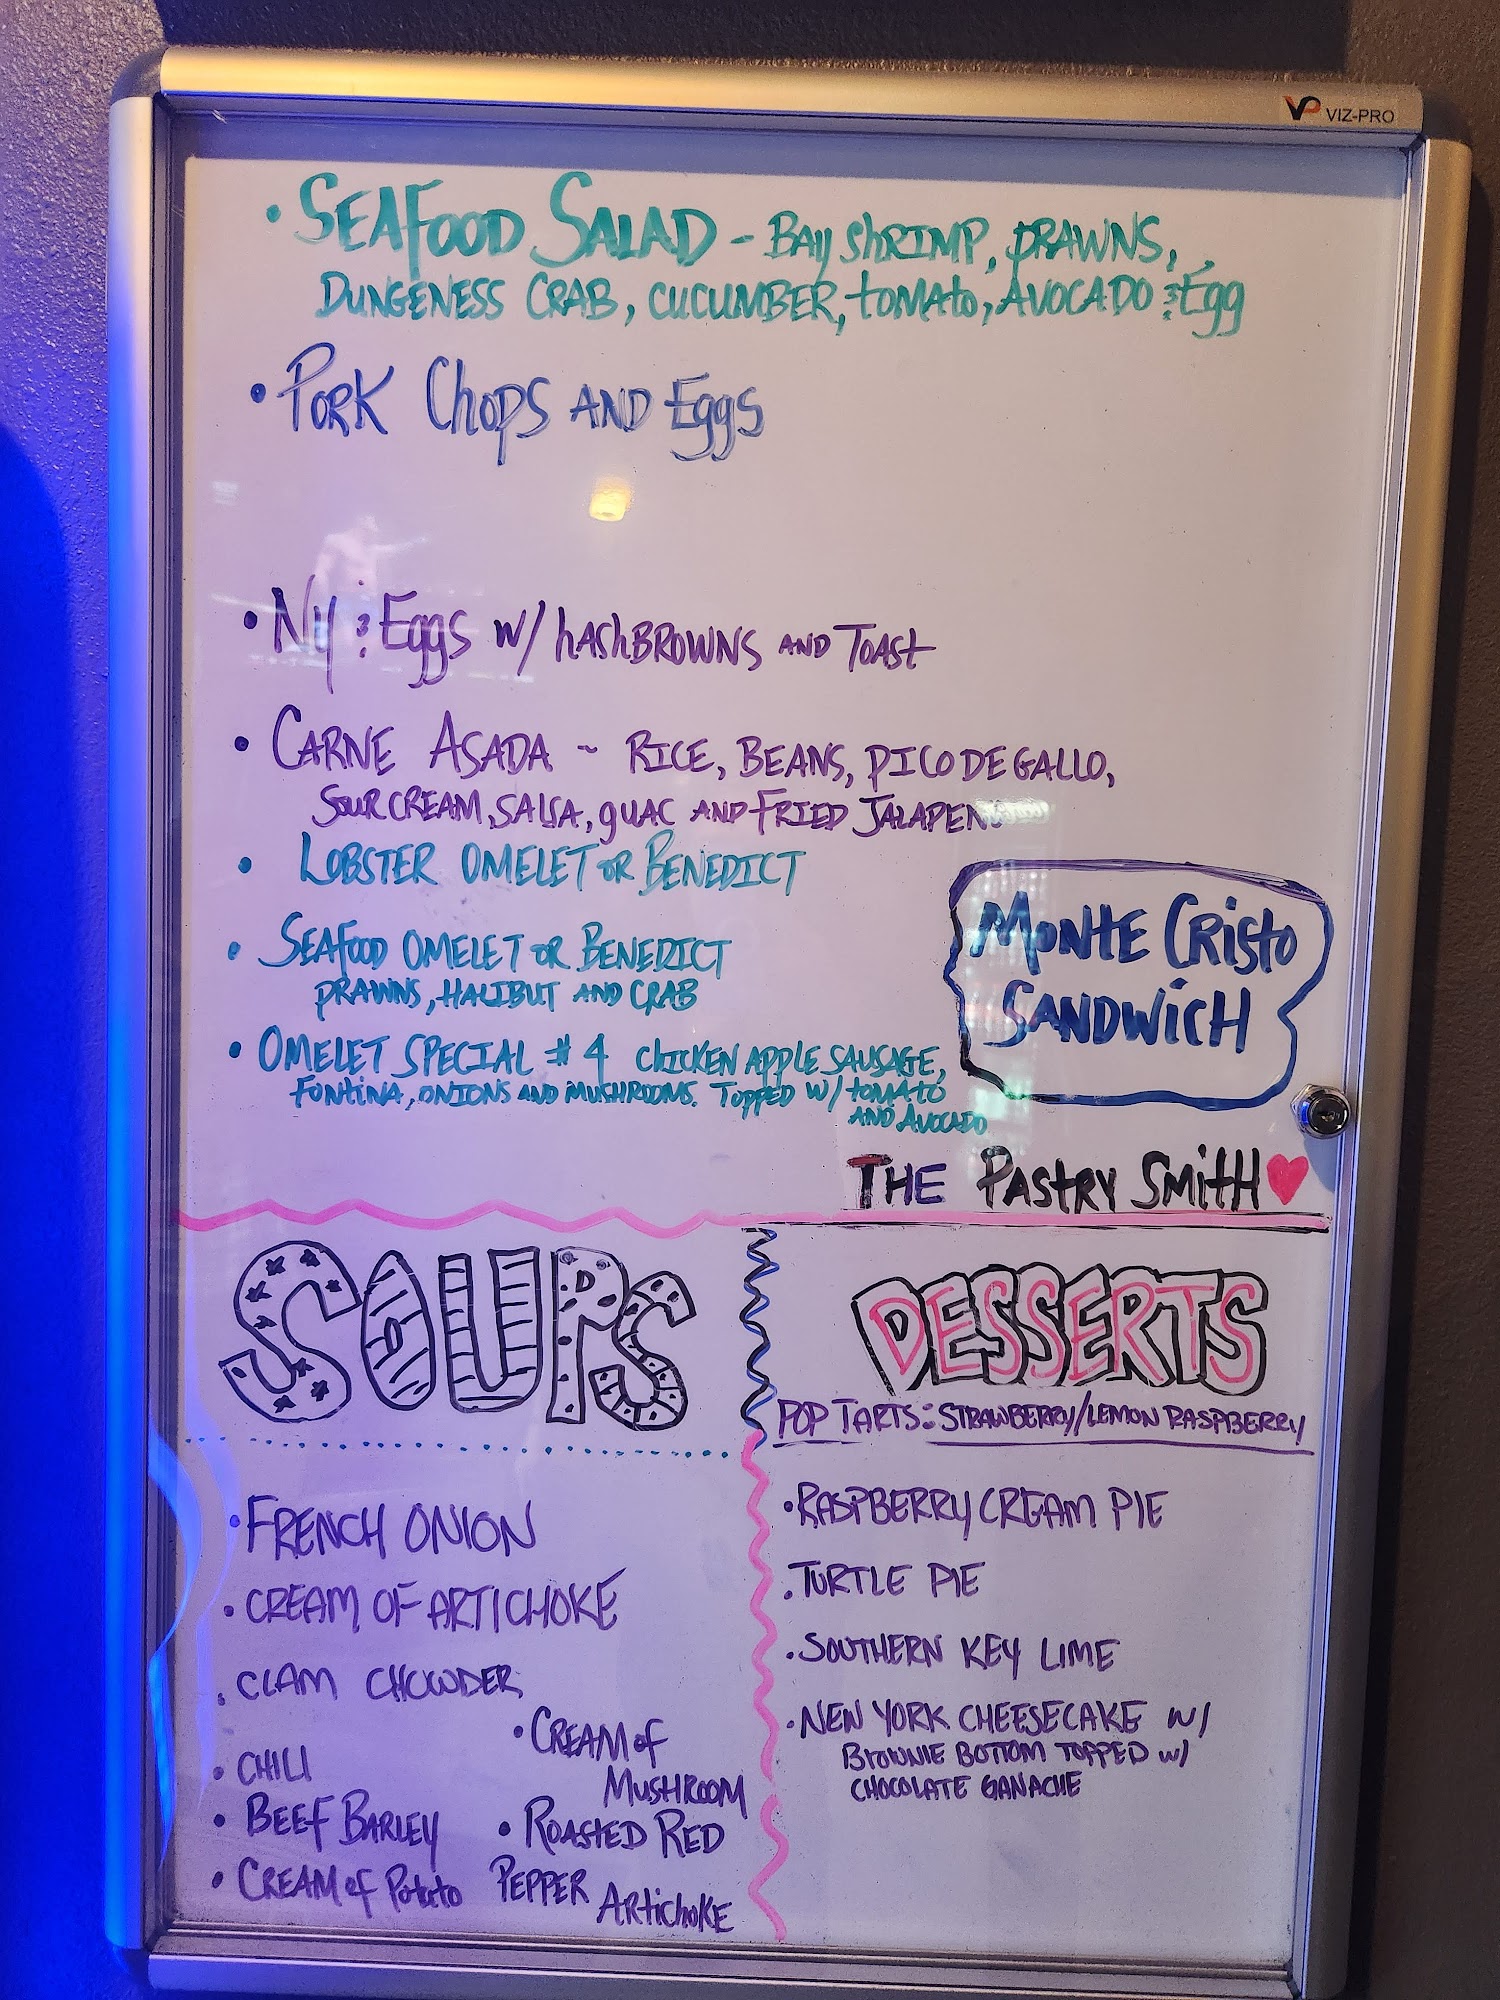 VP VIZ-PRO
• SEAFOOD SALAD - BAY SHRIMP, PRAWNS,
DUNGENESS CRAB, CUCUMBER, TOMATO, AVOCADO & Egg
• PORK Chops AND Eggs
• Ny & Eggs w/ hAShBROWNS AND TOAST
• CARNE ASADA ~ RICE, BEANS, PICO DE GALLO,
SOUR CREAM, SALSA, gUAC AND FRIED JALAPEN
• LOBSTER OMELET OR BENEDICT
• SEAFOOD OMELET OR BENEDICT
PRAWNS, HALIBUT AND CRAB
• OMELET SPECIAL #4 CHICKEN APPLE SAUSAGE,
FONTINA, ONIONS AND MUSHROOMS. TOPPED W/ TOMATO
AND AVOCADO
MONTE CRISTO
SANDWICH
THE PASTRY SMITH
SOUPS
• FRENCH ONION
• CREAM OF ARTICHOKE
• CLAM CHOWDER
• CHILI
• BEEF BARLEY
• CREAM of Potato
• CREAM of
MUSHROOM
• ROASTED RED
PEPPER ARTICHOKE
DESSERTS
POP TARTS: STRAWBERRY/LEMON RASPBERRY
• RASPBERRY CREAM PIE
• TURTLE PIE
• SOUTHERN KEY LIME
• NEW YORK CHEESECAKE W/
BROWNIE BOTTOM TOPPED W/
CHOCOLATE GANACHE